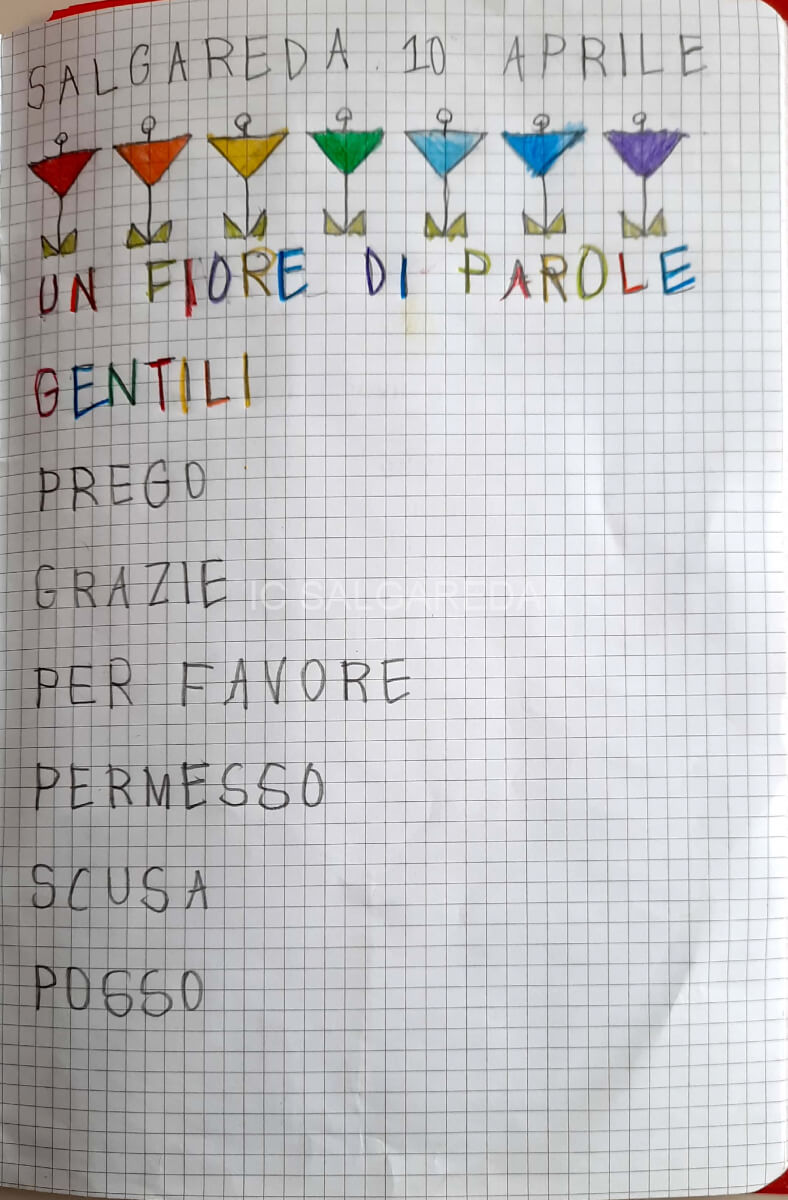 SALGAREDA 10 APRILE
UN FIORE DI PAROLE
GENTILI
PREGO
GRAZIE
IC SALGAREDA
PER FAVORE
PERMESSO
SCUSA
POSSO